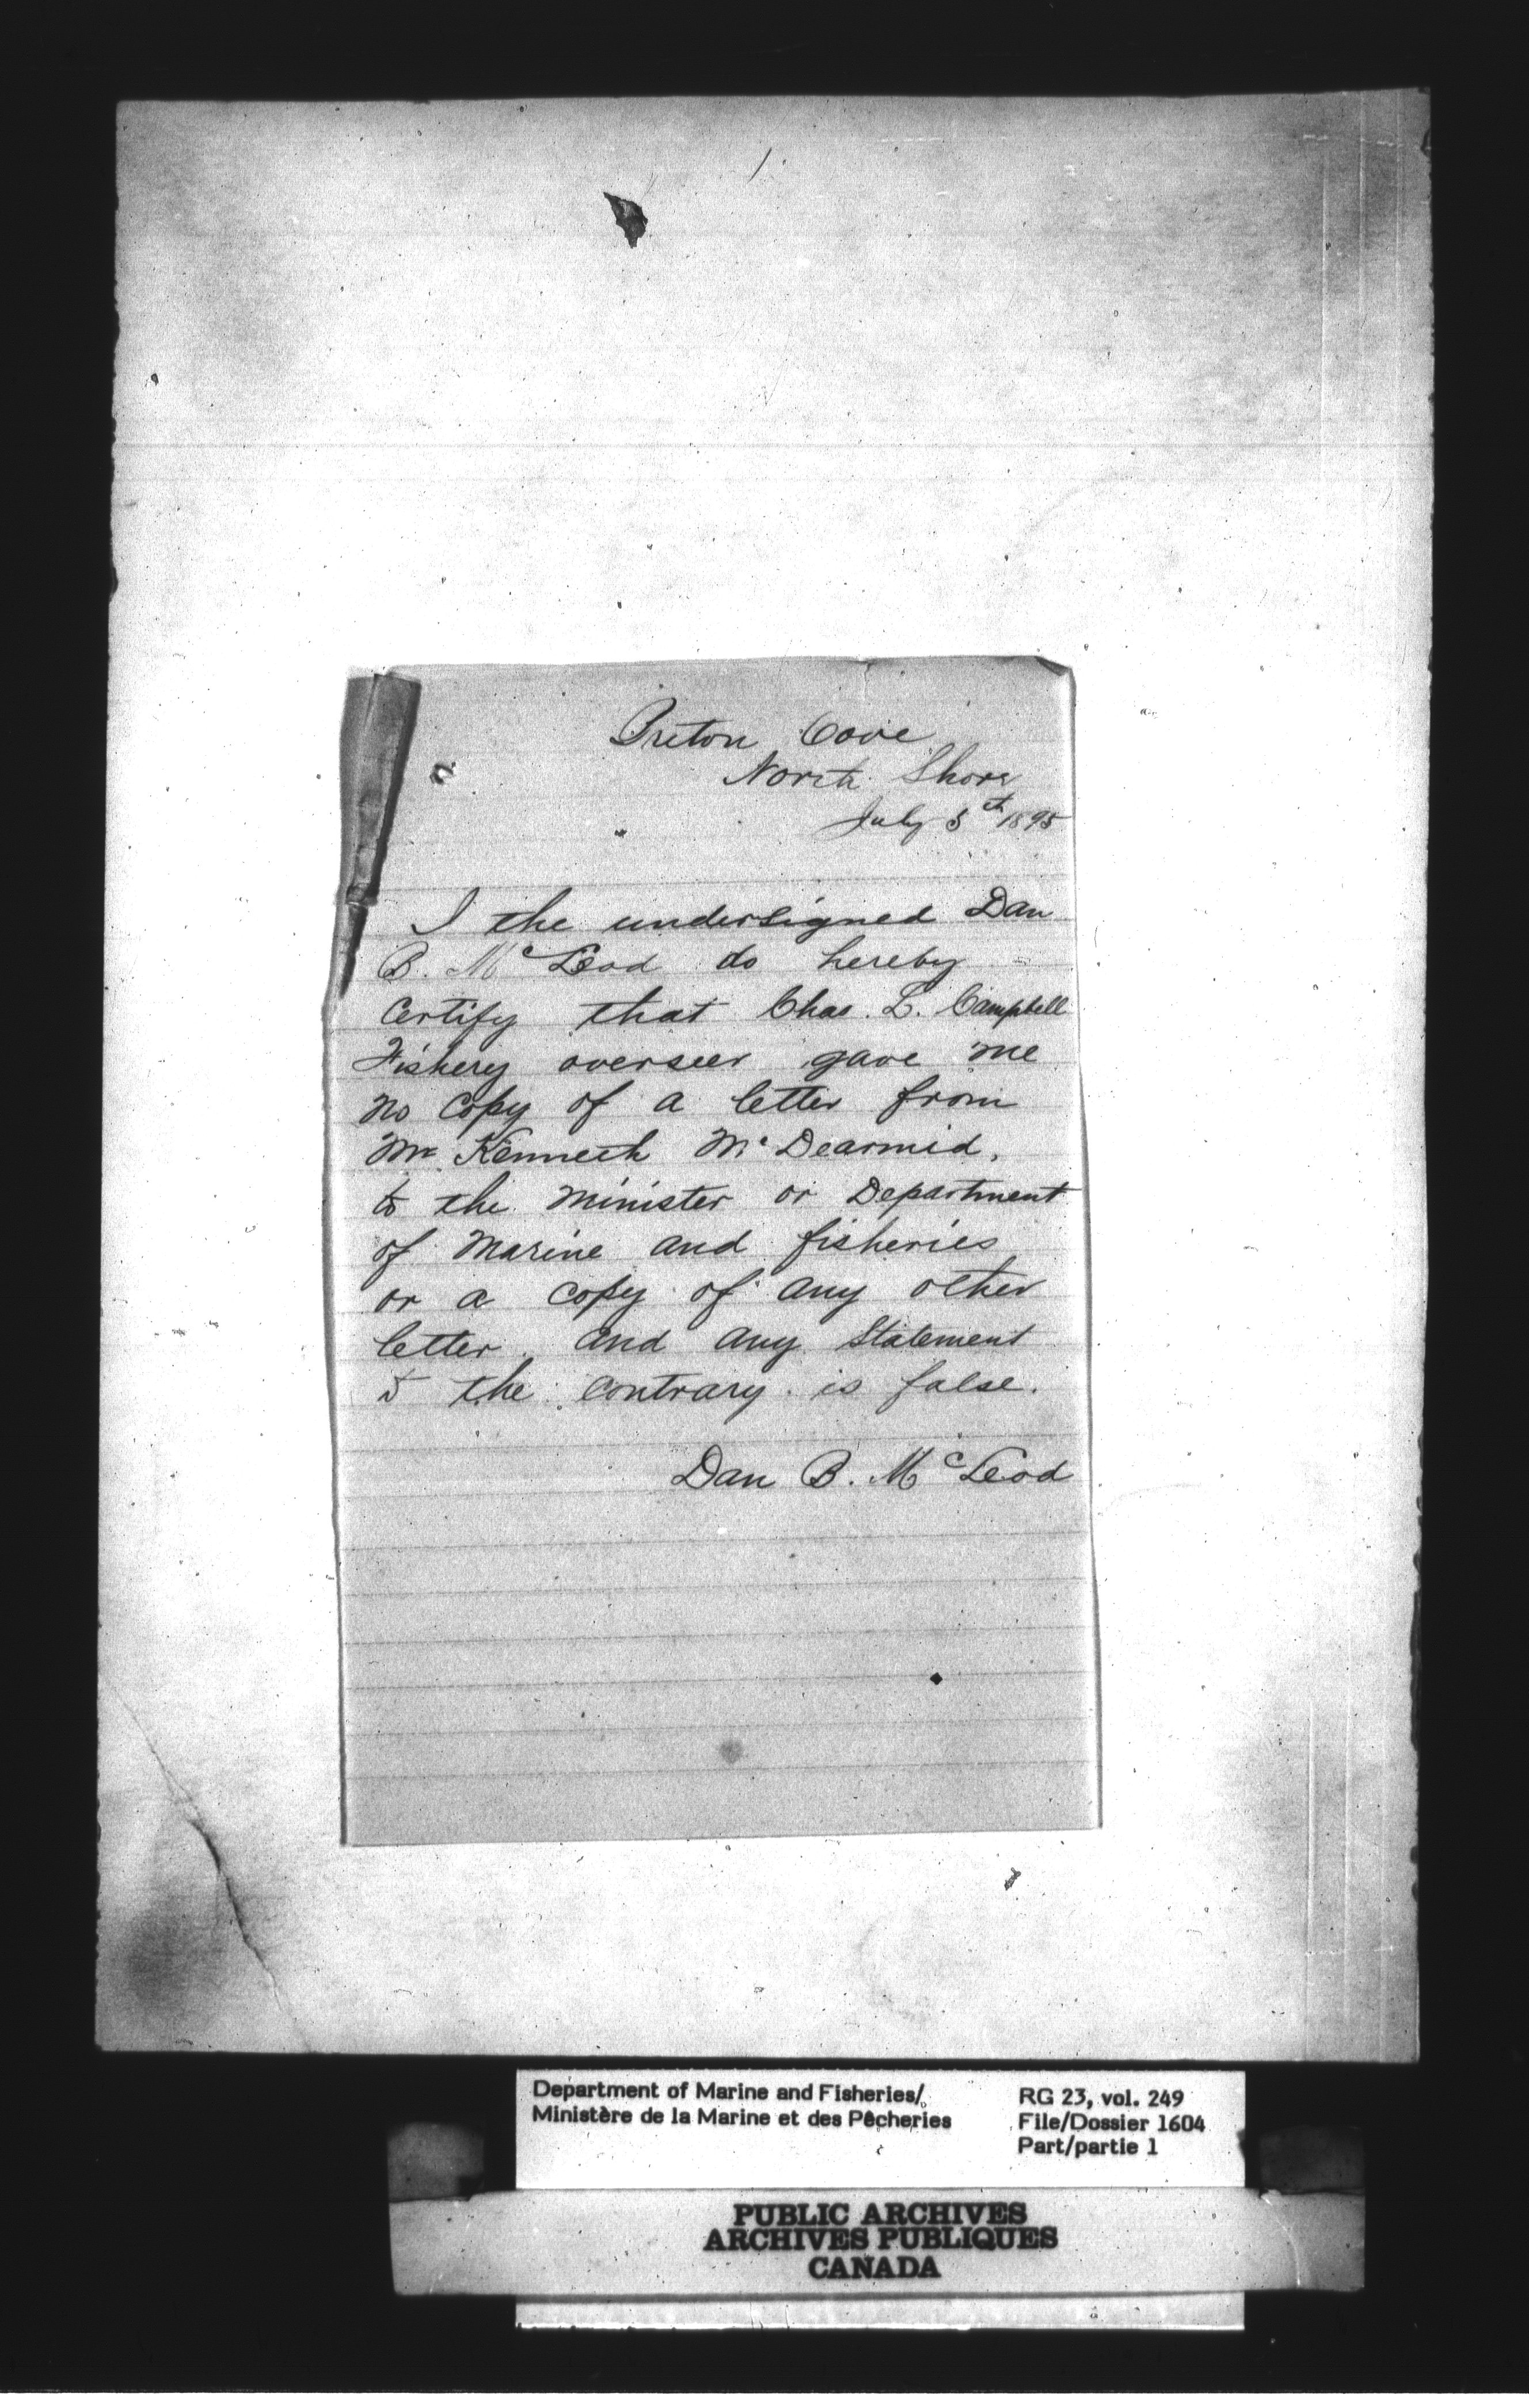 Breton Cove
North Shore
July 5th 1895
I the undersigned Dan
B. McLeod do hereby
certify that Chas. L. Campbell
Fishery overseer gave me
no copy of a letter from
Mr. Kenneth McDearmid,
to the Minister or Department
of Marine and fisheries
or a copy of any other
letter. and any statement
to the contrary is false.
Dan B. McLeod
Department of Marine and Fisheries/
Ministère de la Marine et des Pêcheries
RG 23, vol. 249
File/Dossier 1604
Part/partie 1
PUBLIC ARCHIVES
ARCHIVES PUBLIQUES
CANADA